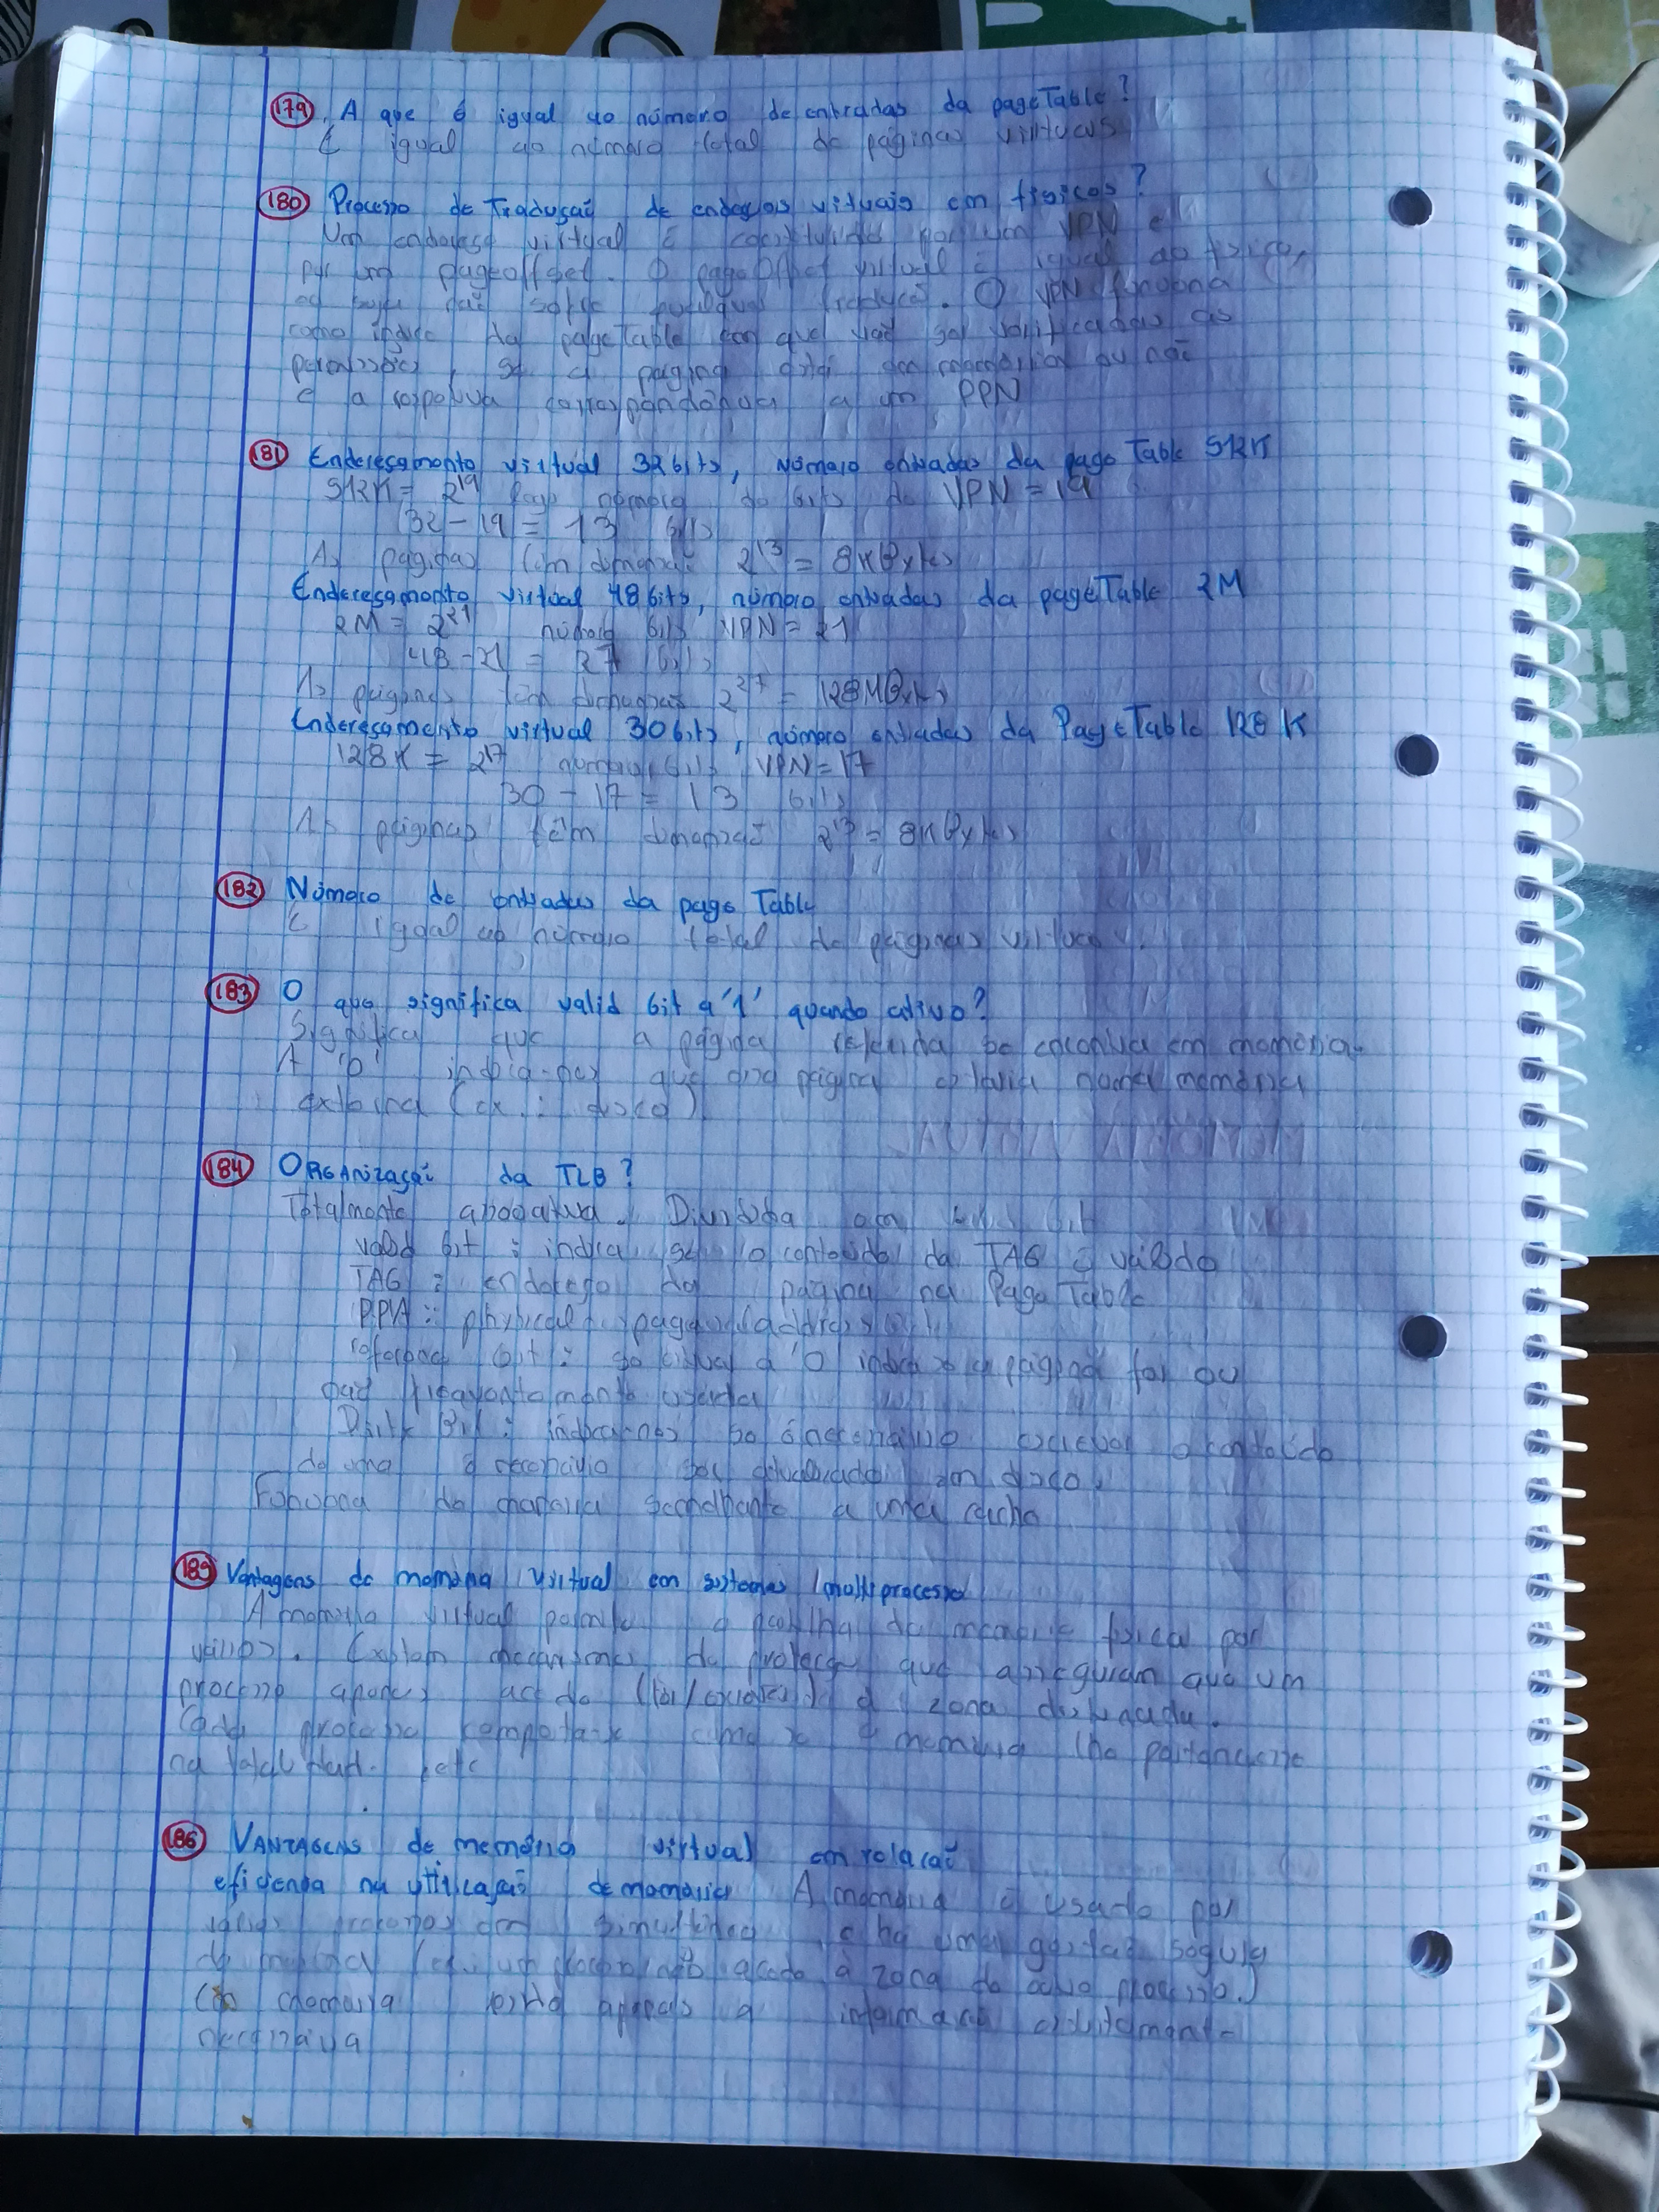 179. A que é igual ao número de entradas da pageTable?
É igual ao número total de páginas virtuais
180 Processo de Tradução de endereços virtuais em físicos?
Um endereço virtual é constituído por um VPN e
por um pageoffset. O pageoffset virtual é igual ao físico,
ou seja não sofre qualquer tradução. O VPN funciona
como índice da pageTable em que vão ser verificadas as
permissões, se a página está em memória ou não
e a respetiva correspondência a um PPN
181 Endereçamento virtual 32bits, número entradas da page Table 512K
512K = 2^19 logo número de bits do VPN = 19
32 - 19 = 13 bits
As páginas têm dimensão 2^13 = 8KBytes
Endereçamento virtual 48bits, número entradas da pageTable 2M
2M = 2^21 número bits VPN = 21
48 - 21 = 27 bits
As páginas têm dimensão 2^27 = 128MBytes
Endereçamento virtual 30bits, número entradas da PageTable 128K
128K = 2^17 número bits VPN = 17
30 - 17 = 13 bits
As páginas têm dimensão 2^13 = 8KBytes
182 Número de entradas da page Table
É igual ao número total de páginas virtuais.
183 O que significa valid bit a '1' quando ativo?
Significa que a página se encontra em memória.
A '0' indica-nos que página estaria numa memória
externa (ex.: disco)
184 ORGANIZAÇÃO da TLB?
Totalmente associativa. Dividida em
valid bit: indica se o conteúdo da TAG é válido
TAG: endereço da página na Page Table
PPA: physical page address
bit: se igual a '0' indica se a página foi ou
não frequentemente usada
Dirty Bit: indica-nos se é necessário escrever o conteúdo
é necessário ser atualizado em disco.
Funciona de maneira semelhante a uma cache
185 Vantagens de memória virtual em sistemas multiprocesso
A memória virtual permite a partilha da memória física por
vários. Existem mecanismos de proteção que asseguram que um
processo apenas acede (ler/escrever) à zona destinada.
Cada processo comporta-se como se a memória lhe pertencesse
na totalidade. etc
186 VANTAGENS de memória virtual em relação
eficiencia na utilização de memória A memória é usado por
vários processos em simultâneo e há uma gestão segura
da memória (ex. um processo não acede à zona do outro processo.)
Em memória está apenas a informação estritamente
necessária